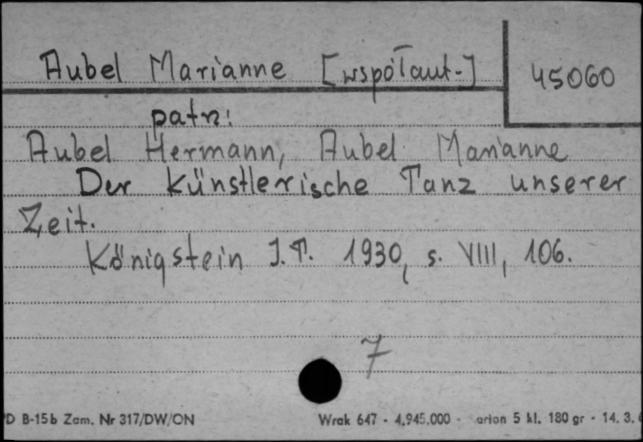 Aubel Marianne [współaut-] 45060
patrz:
Aubel Hermann, Aubel Marianne
Der Künstlerische Tanz unserer
Zeit.
Königstein I.T. 1930, s. VIII, 106.
7
D B-15b Zam. Nr 317/DW/ON Wrak 647 - 4.945.000 - arton 5 kl. 180 gr - 14. 3.